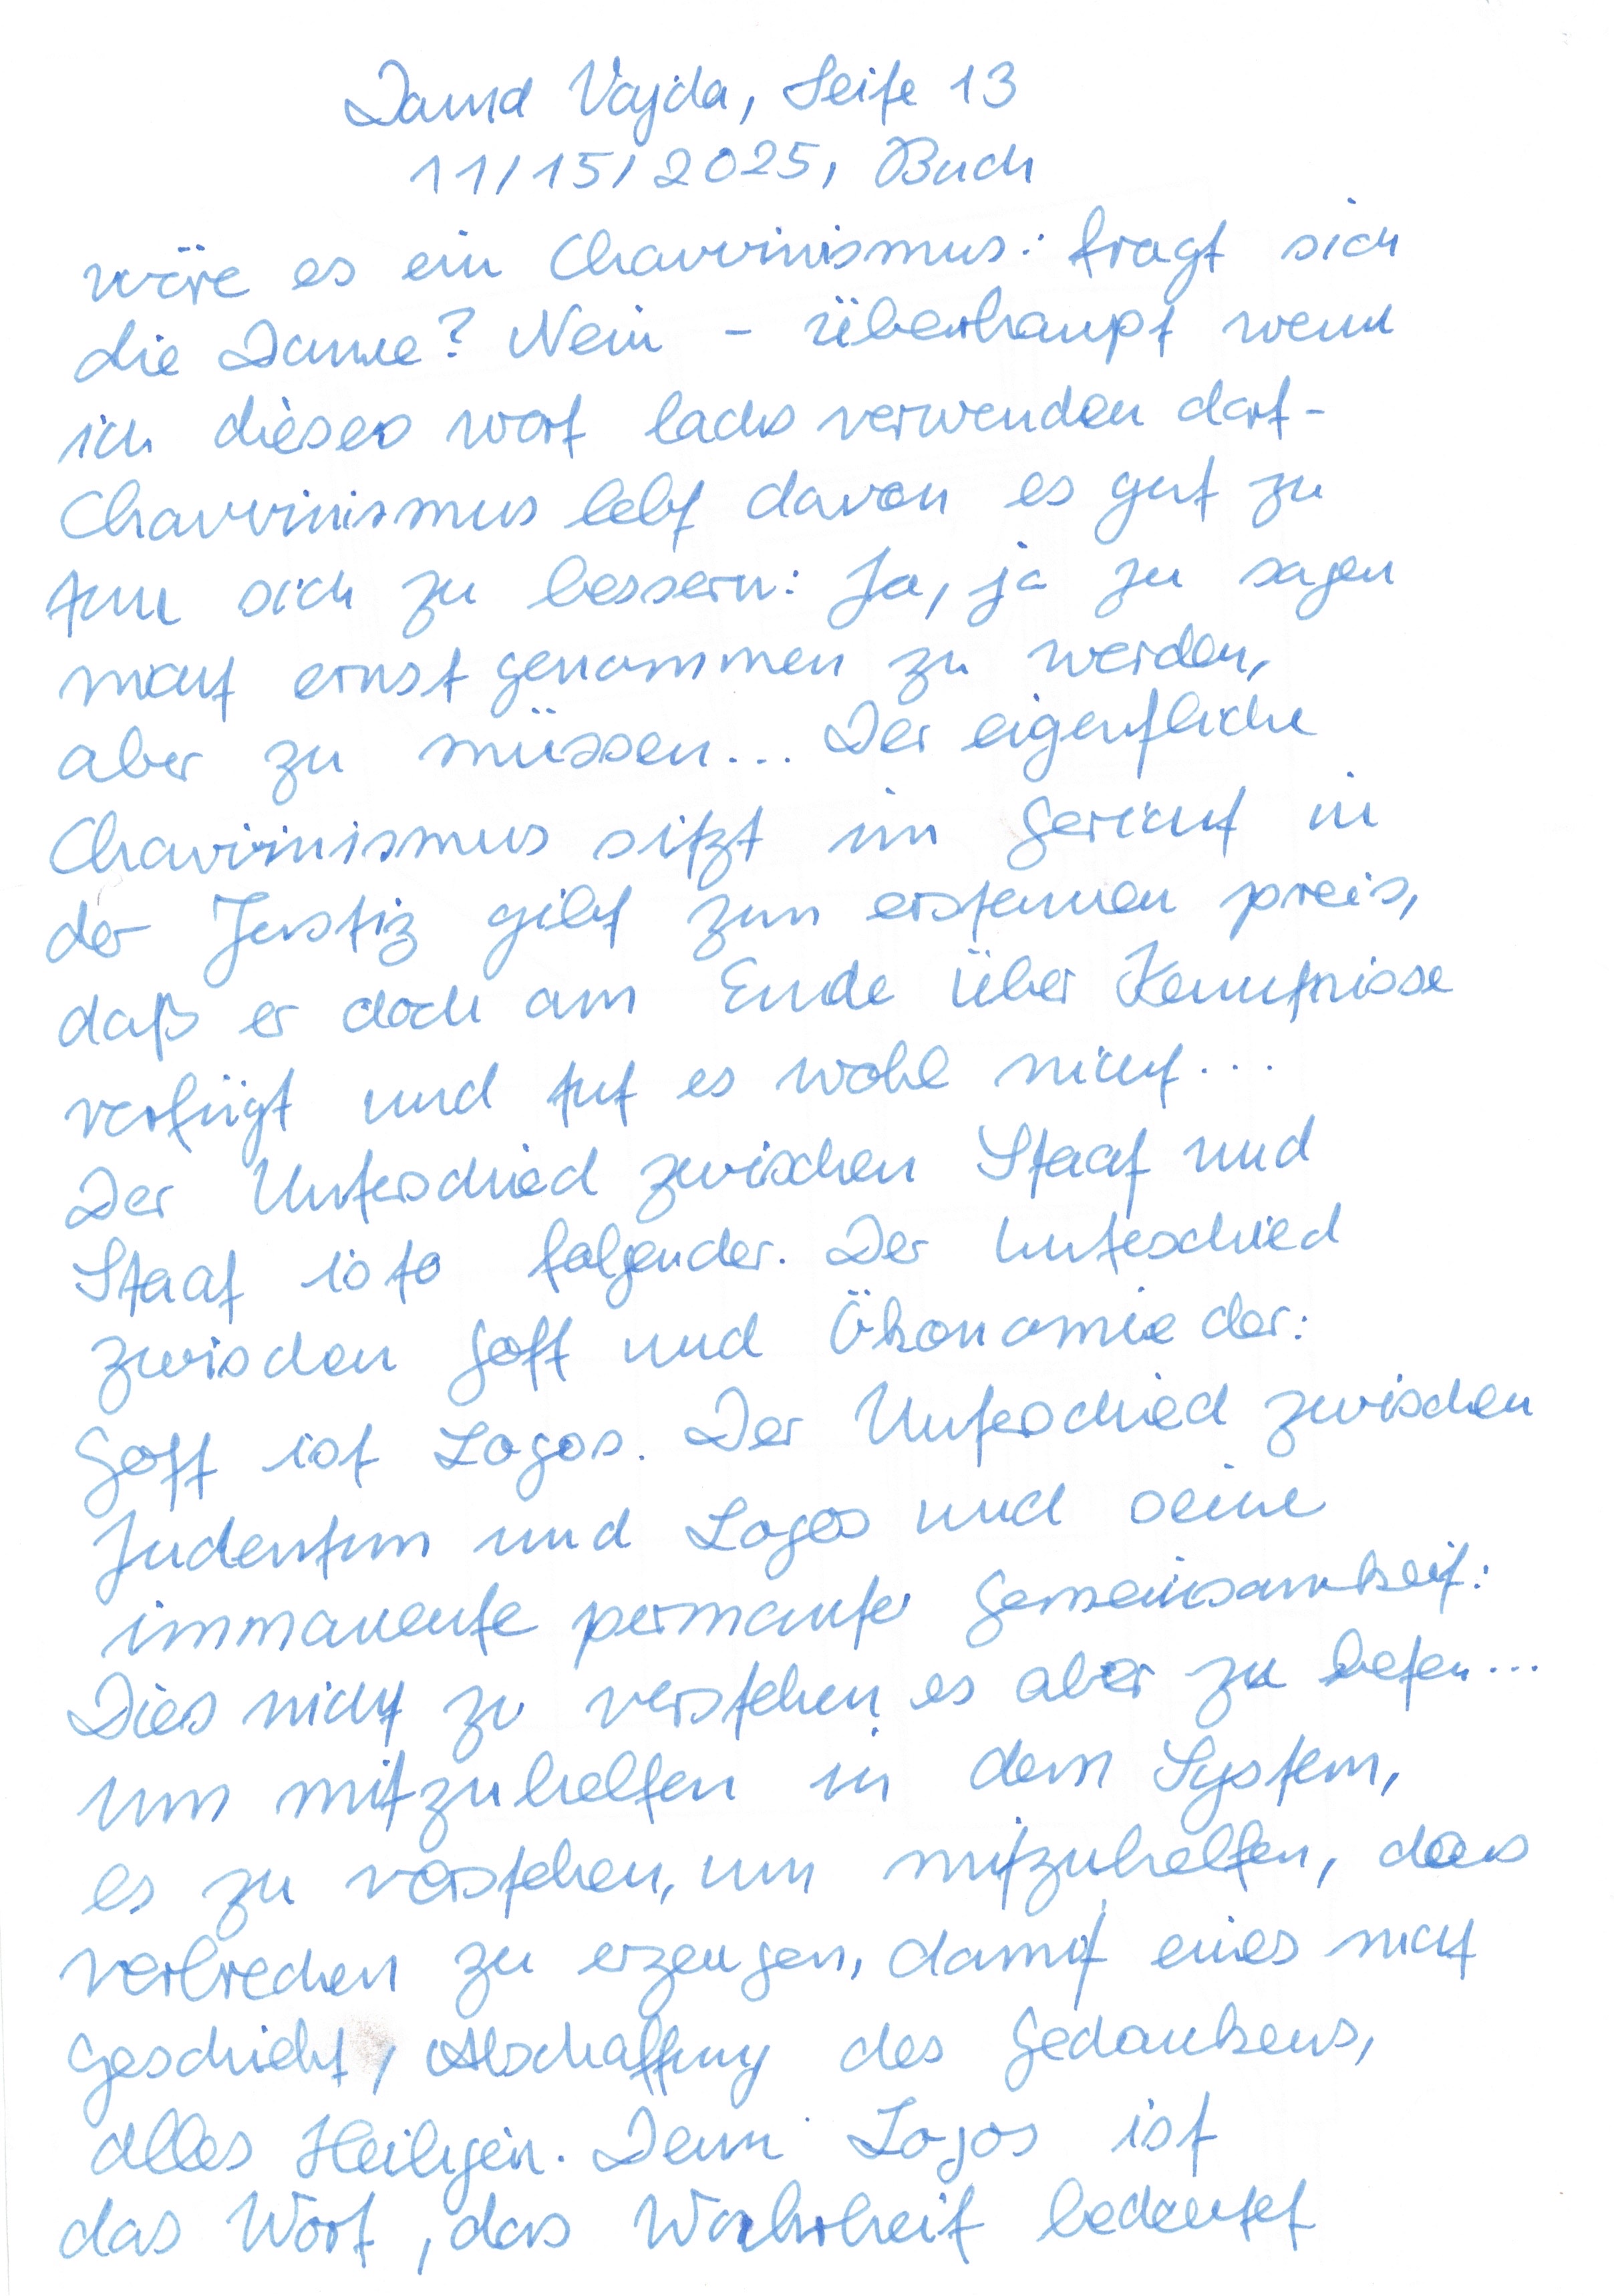 David Vajda, Seite 13
11/15/2025, Buch
wäre es ein Chauvinismus: fragt sich
die Dame? Nein - überhaupt wenn
ich dieses wort lachs verwenden darf-
Chauvinismus lebt davon es gut zu
tun sich zu bessern: Ja, ja zu sagen
nicht ernst genommen zu werden,
aber zu müssen... Der eigentliche
Chauvinismus sitzt im Gericht in
der Justiz gibt zum preis,
daß er doch am Ende über Kenntnisse
verfügt und tut es wohl nicht...
Der Unterschied zwischen Staat und
Staat ists folgender. Der Unteschied
zwischen Gott und Ökonomie der:
Gott ist Logos. Der Unterschied zwischen
Judentum und Logos und seine
immanente permante Gemeinsamkeit:
Dies nicht zu verstehen es aber zu beten...
um mitzuhelfen in dem System,
es zu verstehen, um mitzuhelfen, das
verbrechen zu erzeugen, damit eines nicht
geschieht, Abschaffung des Gedankens,
alles Heiligen. Denn Logos ist
das Wort, das Wahrheit bedeutet